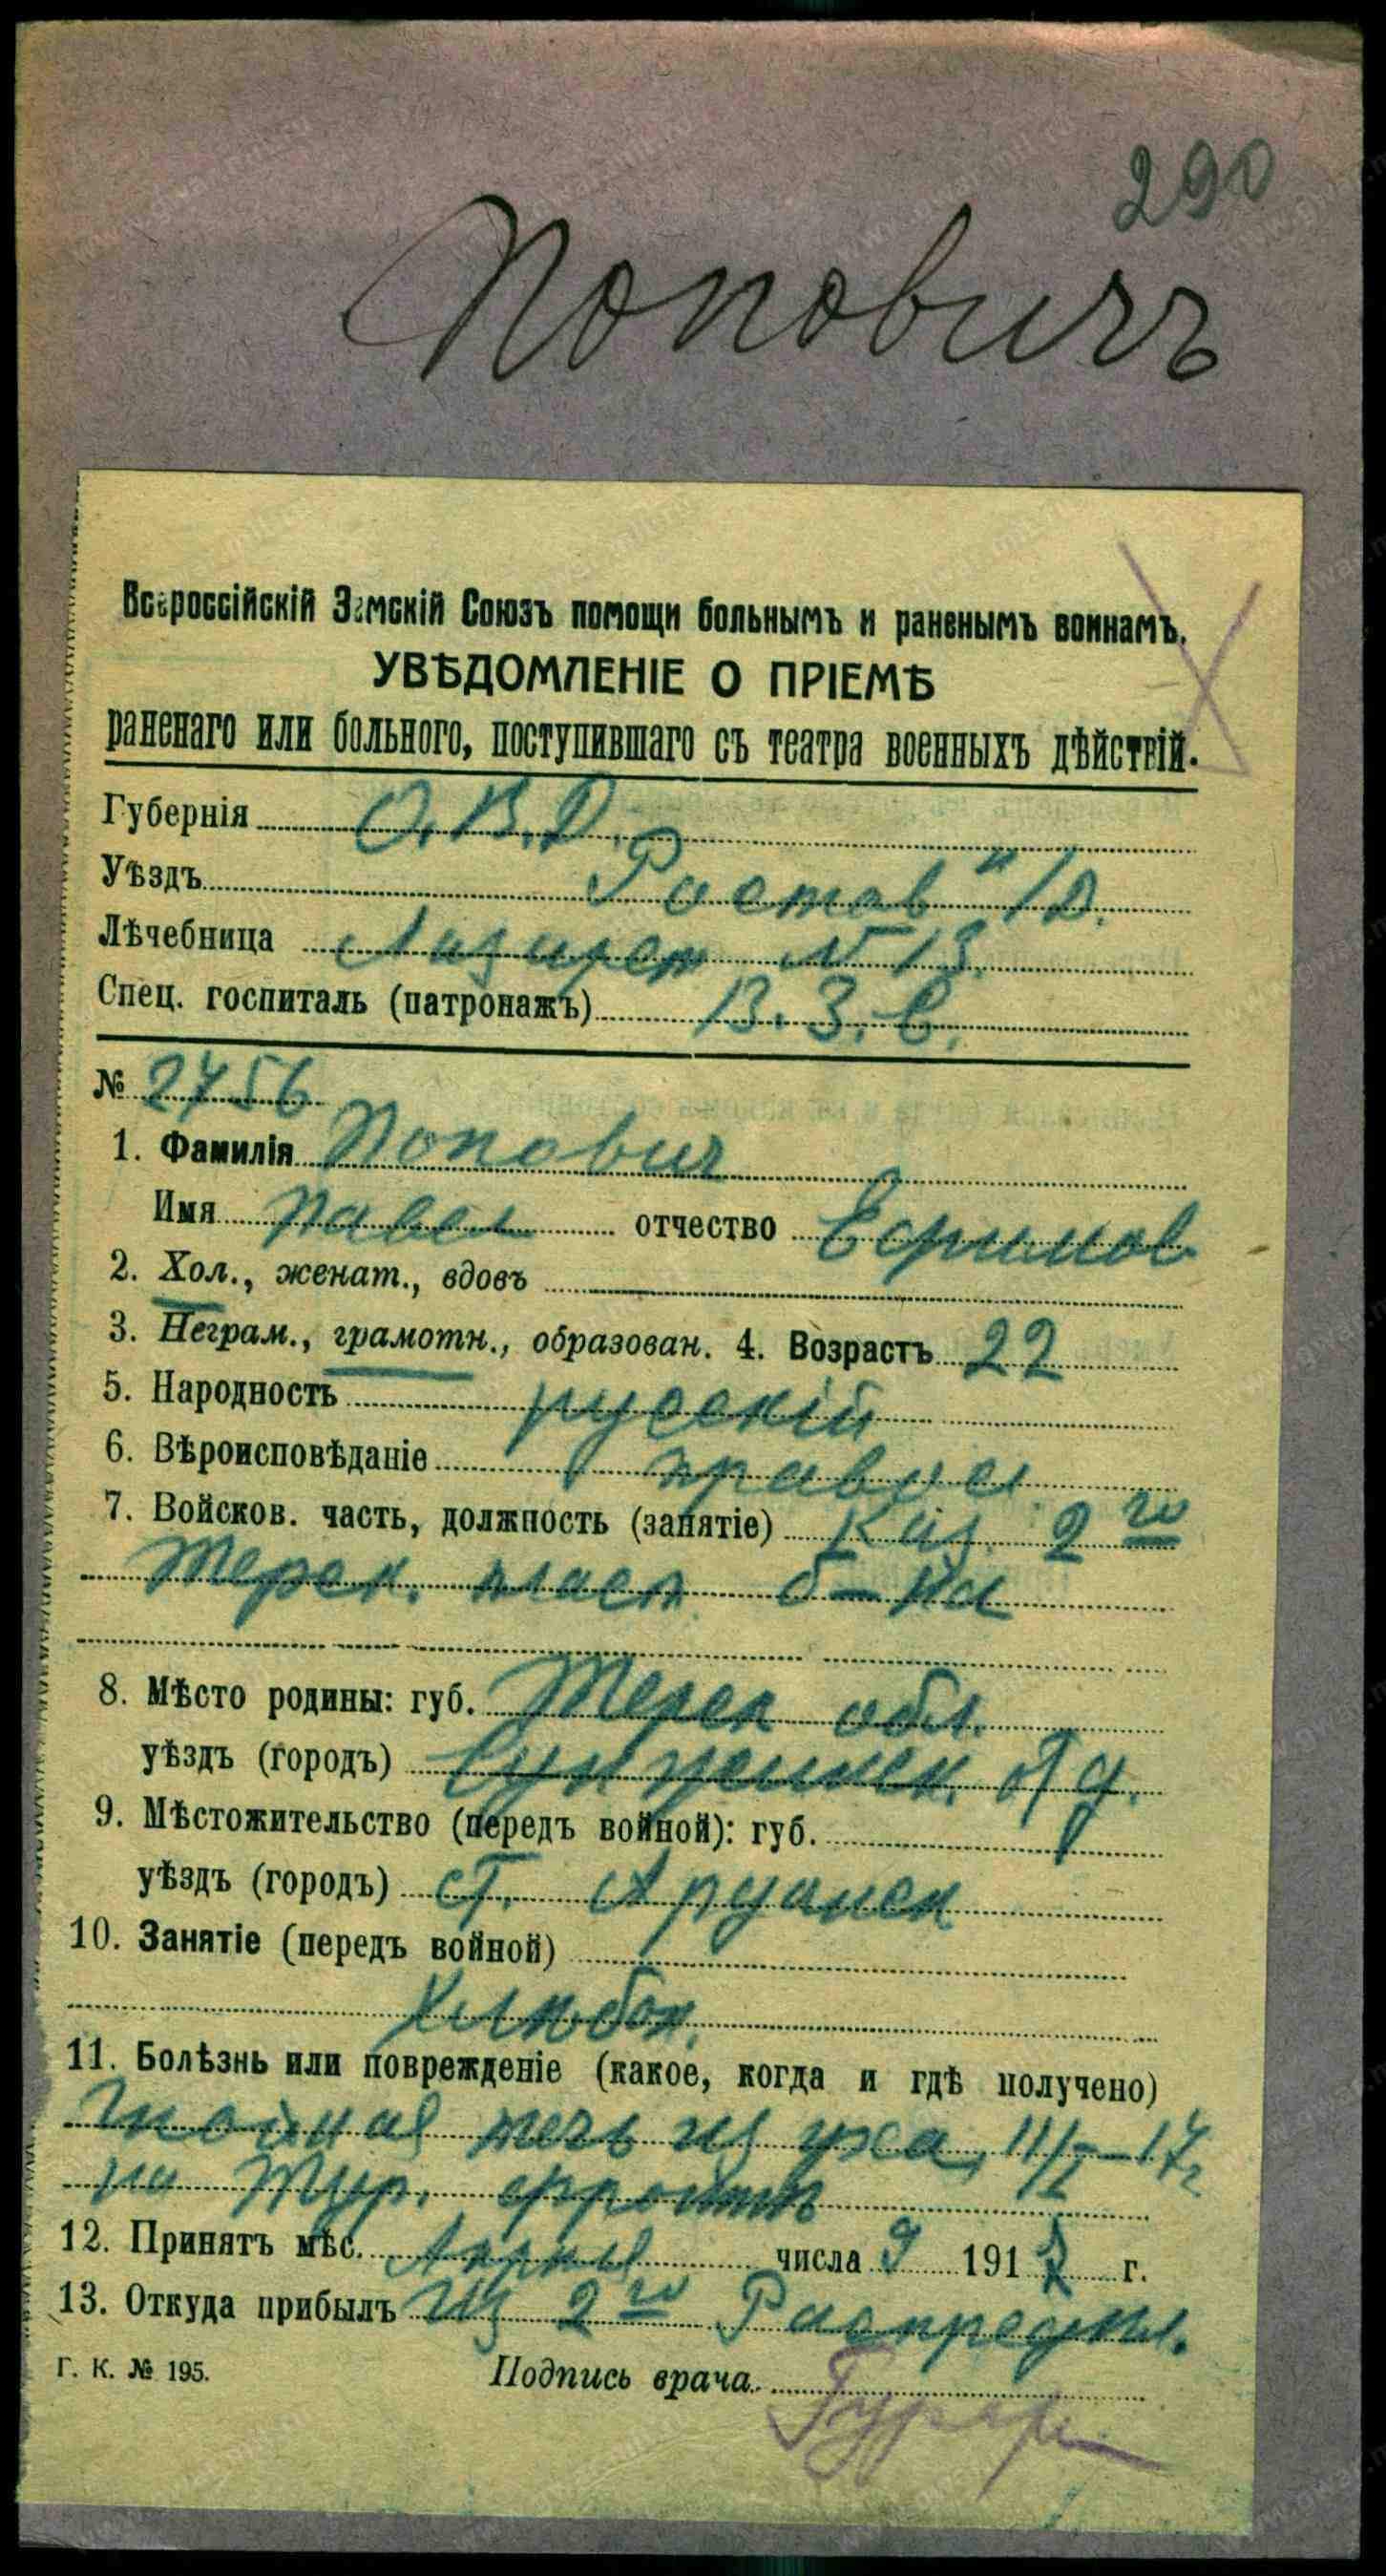 290
Поповичъ
Всероссійскій Земскій Союзъ помощи больнымъ и раненымъ воинамъ.
УВѢДОМЛЕНІЕ О ПРІЕМѢ
раненаго или больного, поступившаго съ театра военныхъ дѣйствій.
Губернія О.В.Д.
Уѣздъ Ростов н/Д.
Лѣчебница Лазарет № 13
Спец. госпиталь (патронажъ) В. З. С.
№ 2756
1. Фамилія Попович
Имя Павел отчество Ефимов
2. Хол., женат., вдовъ
3. Неграм., грамотн., образован. 4. Возрастъ 22
5. Народность русскій
6. Вѣроисповѣданіе правосл
7. Войсков. часть, должность (занятіе) Каз. 2го
Терск. пласт. б-на
8. Мѣсто родины: губ. Терск обл.
уѣздъ (городъ) Сунженск. отд.
9. Мѣстожительство (передъ войной): губ.
уѣздъ (городъ) ст.
10. Занятіе (передъ войной)
Хлѣбоп.
11. Болѣзнь или поврежденіе (какое, когда и гдѣ получено)
Гнойная течь из уха, 11/I-17г
на Тур. фронтѣ
12. Принятъ мѣс. Апрѣл числа 9 1917 г.
13. Откуда прибылъ Из 2го Распредѣл.
Г. К. № 195. Подпись врача